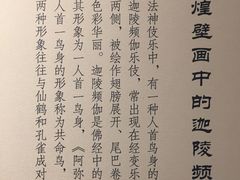 煌壁画中的迦陵频
法神伎乐中，有一种人首鸟身的
迦陵频伽乐伎，常出现在经变乐
两侧，被绘作翅膀展开、尾巴卷
色彩华丽。迦陵频伽是佛经中的
其形象为一人首一鸟身，《阿弥
人首一鸟身的形象称为共命鸟，
两种形象往往与仙鹤和孔雀成对